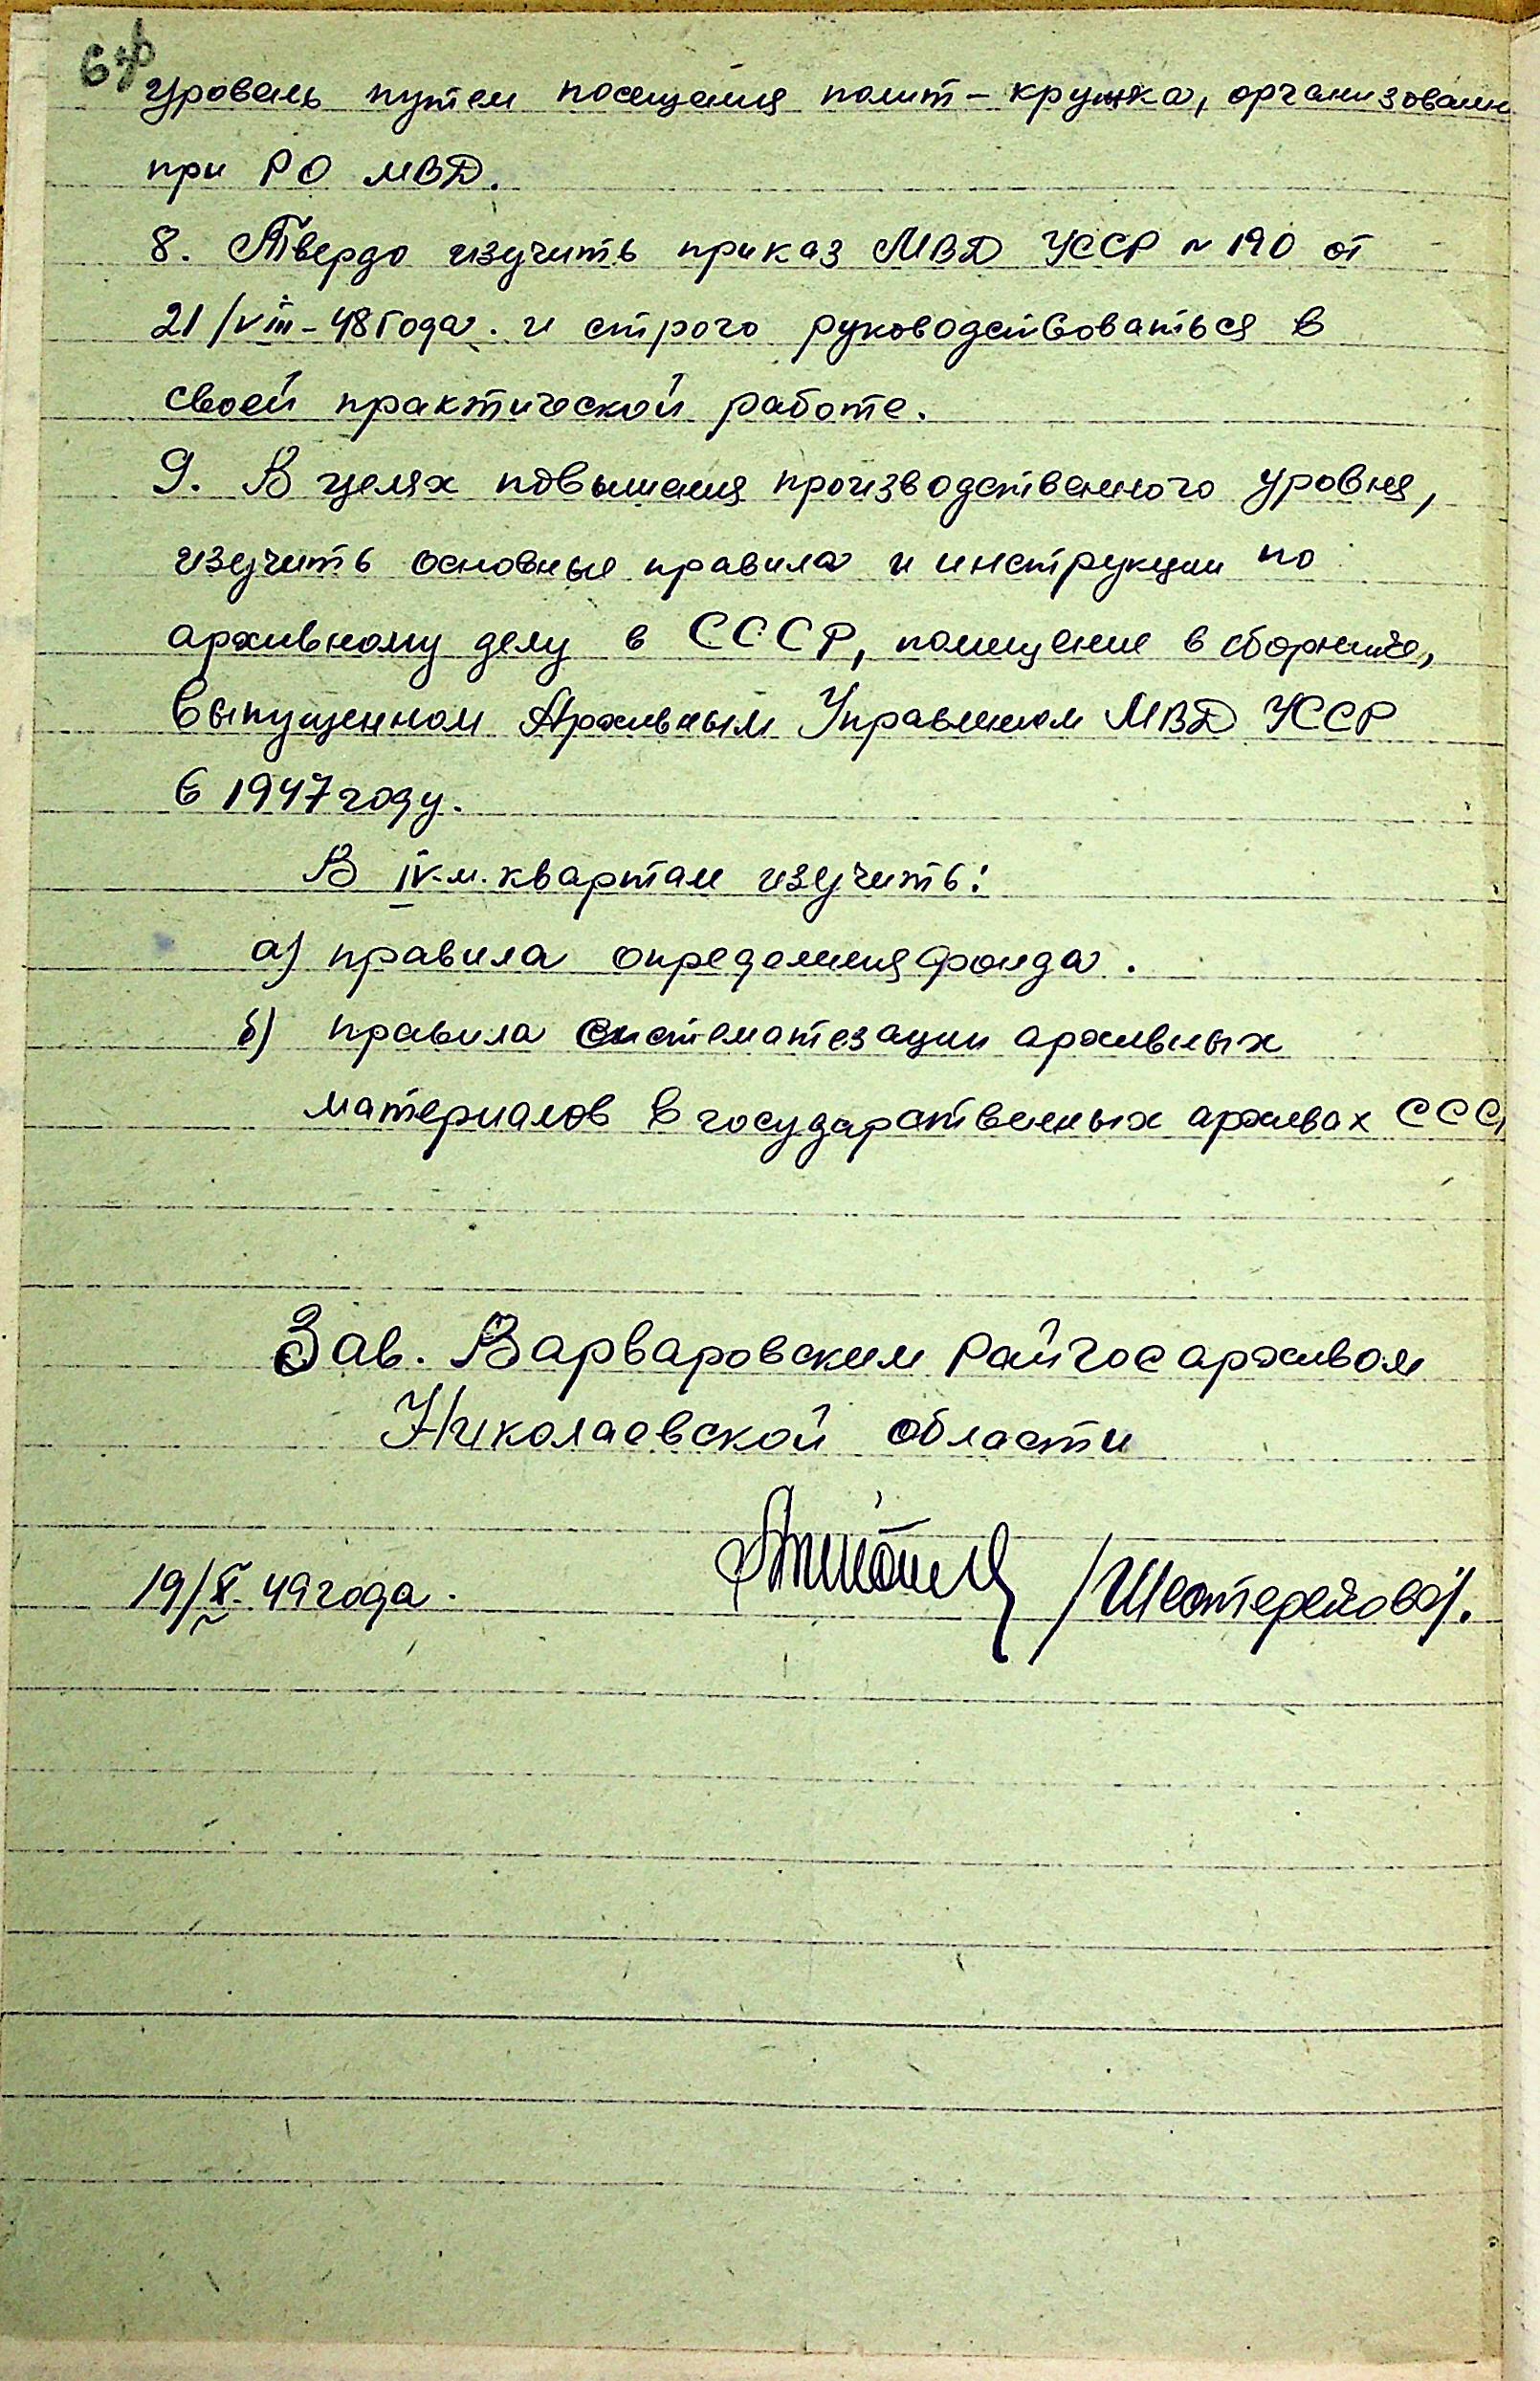 уровень путем посещения полит-кружка, организованн
при РО МВД.
8. Твердо изучить приказ МВД УССР № 190 от
21/VIII-48 года. и строго руководствоваться в
своей практической работе.
9. В целях повышения производственного уровня,
изучить основные правила и инструкции по
архивному делу в СССР, помещение в сборнике,
выпущенном Архивным Управлением МВД УССР
в 1947 году.
В IV-м. квартале изучить:
а) правила определения фонда.
б) правила систематезации архивных
материалов в государственных архивах ССС
Зав. Варваровским Райгосархивом
Николаевской области
19/X-49 года. /Шестерейова/.